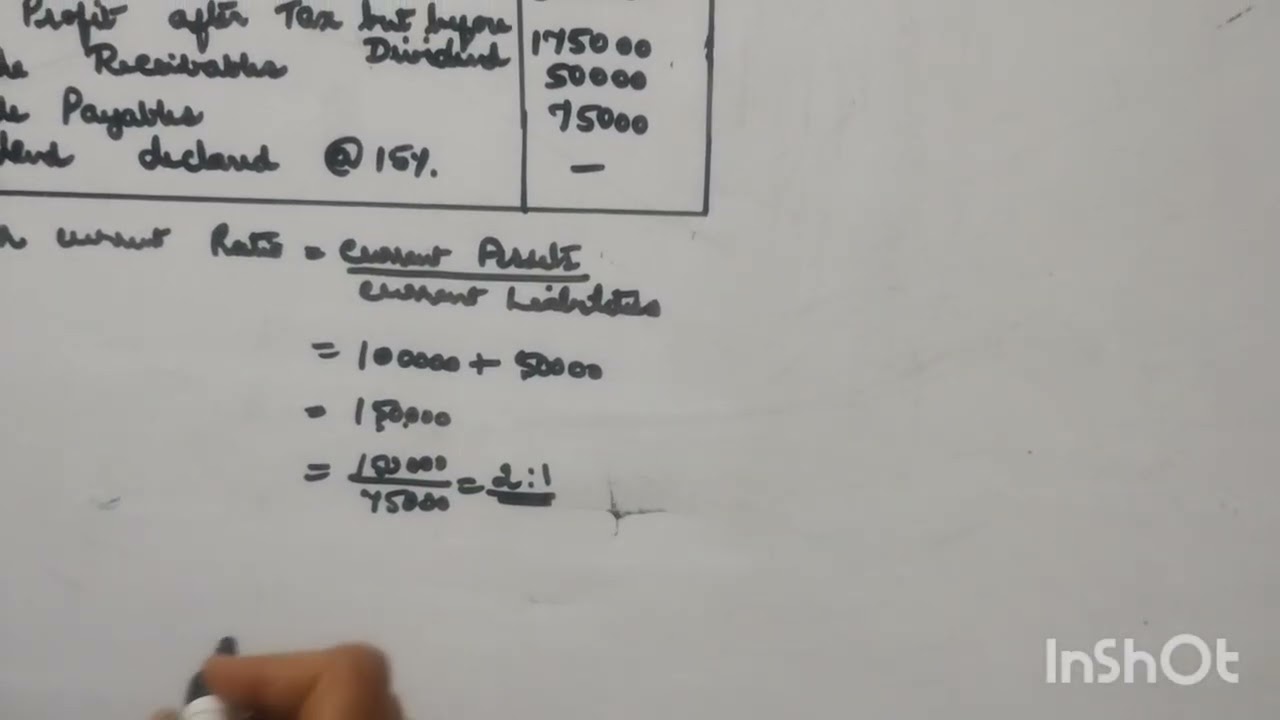 Profit after Tax but before
Dividend 175000
Receivables 50000
Payables 75000
declared @ 15%. —
current Ratio = Current Assets
Current Liabilities
= 100000 + 50000
= 150,000
= 150000
75000 = 2:1
InShOt